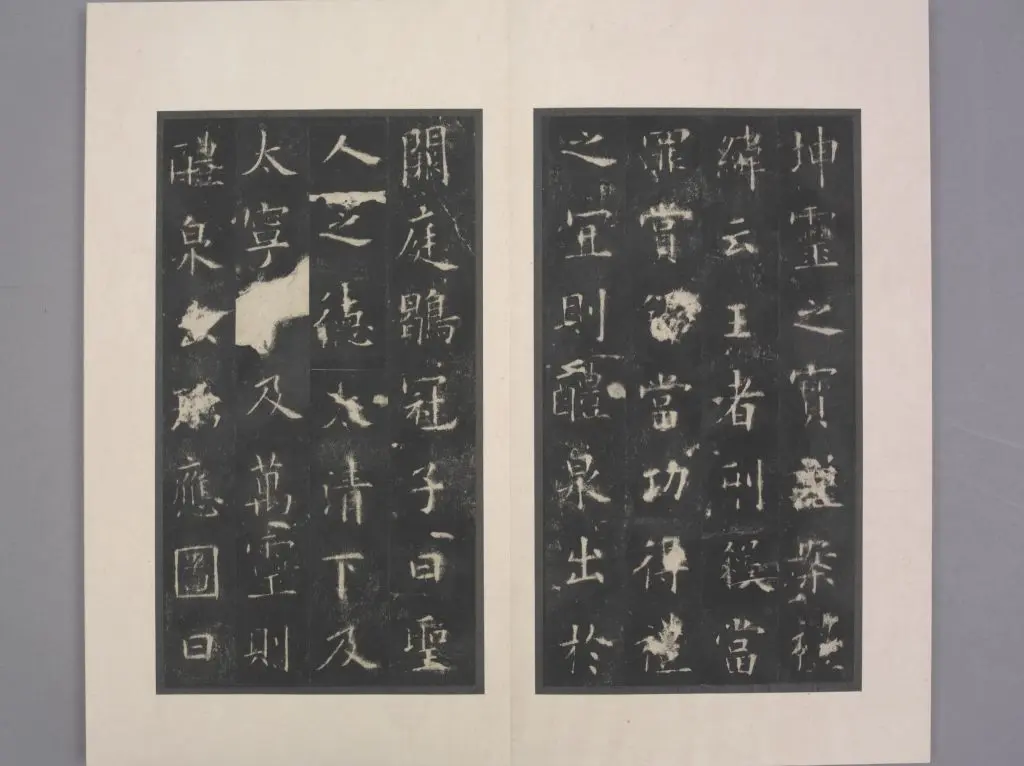 坤靈之寶謹案禮
緯云王者刑煞當
罪賞錫當功得禮
之宜則醴泉出於
闕庭鶡冠子曰聖
人之德太清下及
太寧及萬靈則
醴泉瑞應圖曰